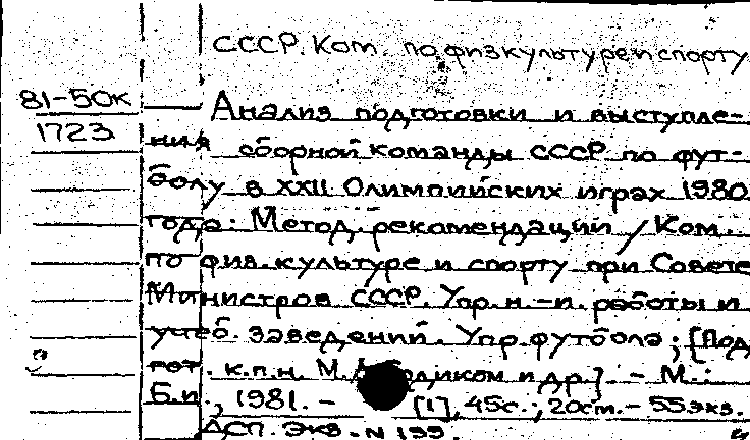 СССР. Ком. по физкультуре и спорту
81-50к
1723
Анализ подготовки и выступле-
ния сборной команды СССР по фут-
болу в XXII Олимпийских играх 1980
года: Метод. рекомендации / Ком.
по физ. культуре и спорту при Совете
Министров СССР. Упр. н.-и. работы и
учеб. заведений. Упр. футбола; [Под
гот. к.п.н. М. и др.] - М.:
Б.и., 1981. - [1], 45с.; 20см. - 55экз.
ДСП. Экз. N 199.